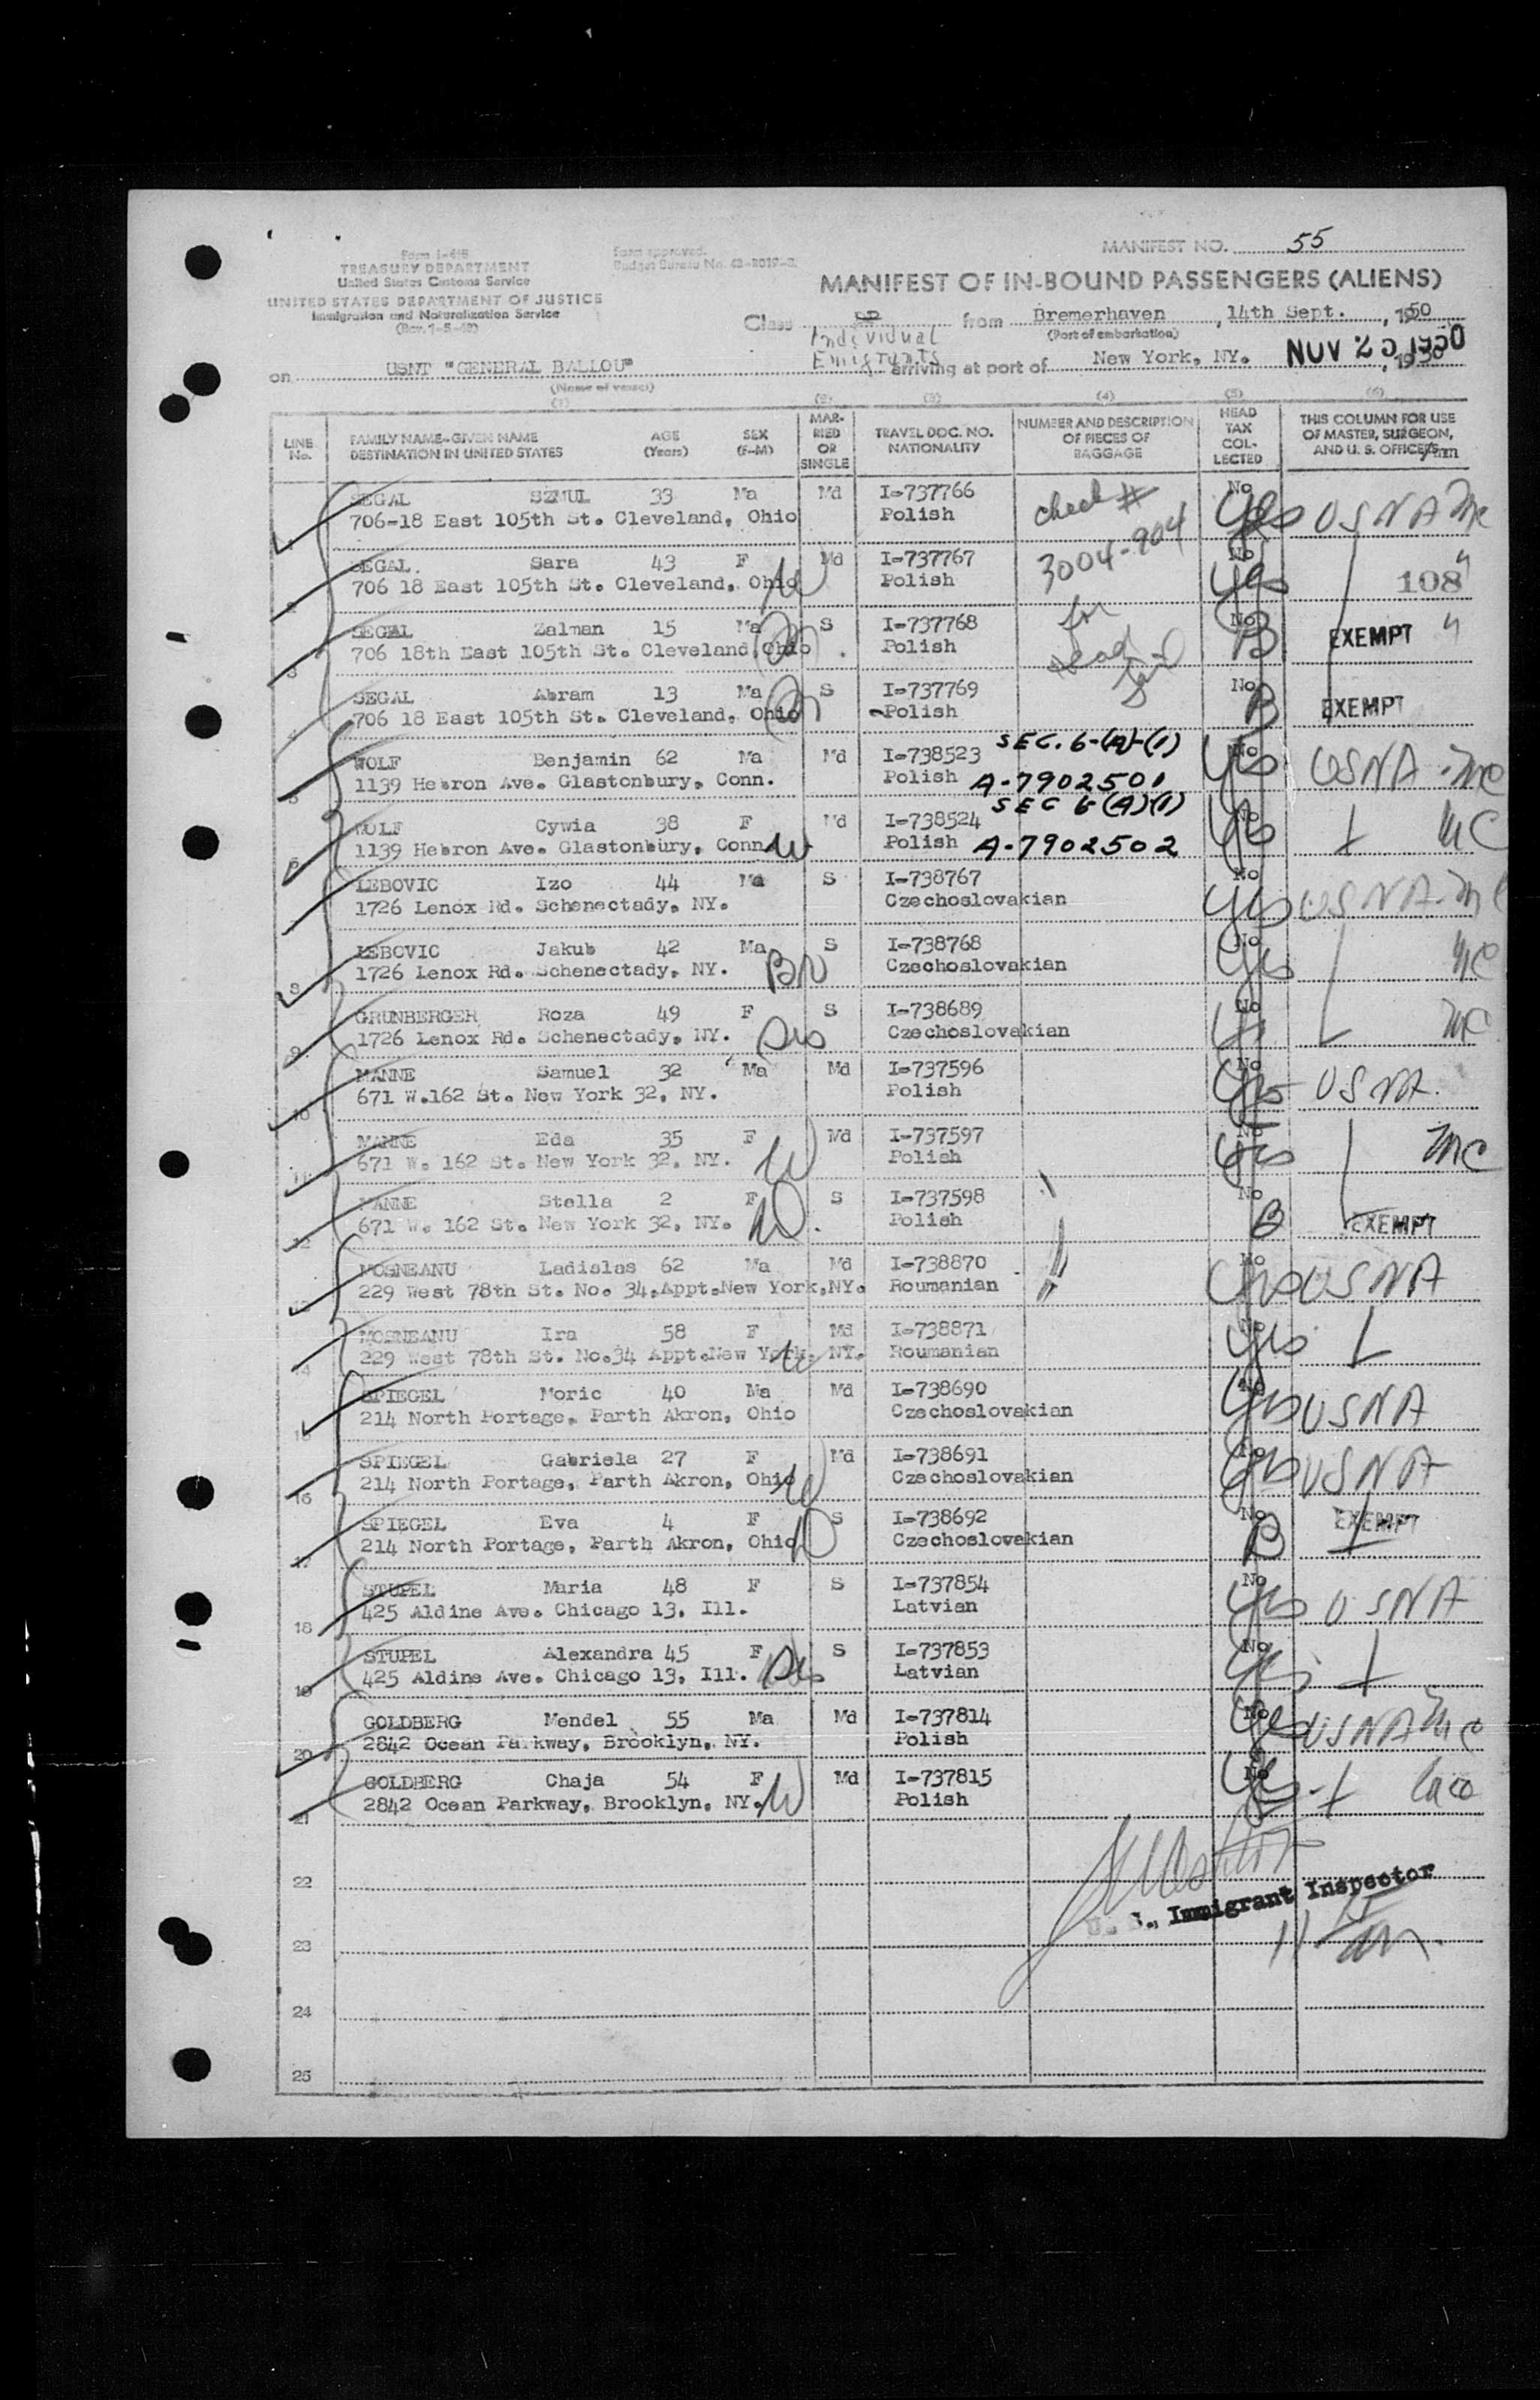 MANIFEST NO. 55
Form I-415
TREASURY DEPARTMENT
United States Customs Service
UNITED STATES DEPARTMENT OF JUSTICE
Immigration and Naturalization Service
(Rev. 1-5-49)
Form approved.
Budget Bureau No. 43-R019-3.
MANIFEST OF IN-BOUND PASSENGERS (ALIENS)
Class Individual Emigrants from Bremerhaven, 14th Sept., 1950
(Port of embarkation)
on USNT "GENERAL BALLOU" arriving at port of New York, NY. NOV 1950
(Name of vessel)
(1) (2) (3) (4) (5) (6)
LINE No.
FAMILY NAME-GIVEN NAME
DESTINATION IN UNITED STATES
AGE (Years)
SEX (F-M)
MARRIED OR SINGLE
TRAVEL DOC. NO.
NATIONALITY
NUMBER AND DESCRIPTION OF PIECES OF BAGGAGE
HEAD TAX COLLECTED
THIS COLUMN FOR USE OF MASTER, SURGEON, AND U. S. OFFICERS
SEGAL SZMUL 33 Ma Md I-737766 check # No Yes USNA MC
706-18 East 105th St. Cleveland, Ohio Polish
2 SEGAL. Sara 43 F Md I-737767 3004-904 No Yes 108 "
706 18 East 105th St. Cleveland, Ohio W Polish
3 SEGAL Zalman 15 Ma S I-737768 for No B EXEMPT "
706 18th East 105th St. Cleveland Ohio Polish Head Tax
4 SEGAL Abram 13 Ma S I-737769 No B EXEMPT
706 18 East 105th St. Cleveland, Ohio Polish
5 WOLF Benjamin 62 Ma Md I-738523 SEC. 6-(A)-(1) No Yes USNA-MC
1139 Hebron Ave. Glastonbury, Conn. Polish A-7902501
6 WOLF Cywia 38 F Md I-738524 SEC 6-(A)(1) No Yes MC
1139 Hebron Ave. Glastonbury, Conn W Polish A-7902502
7 LEBOVIC Izo 44 Ma S I-738767 No Yes USNA-MC
1726 Lenox Rd. Schenectady, NY. Czechoslovakian
8 LEBOVIC Jakub 42 Ma S I-738768 No Yes MC
1726 Lenox Rd. Schenectady, NY. Czechoslovakian
9 GRUNBERGER Roza 49 F S I-738689 No MC
1726 Lenox Rd. Schenectady, NY. Sis Czechoslovakian
10 MANNE Samuel 32 Ma Md I-737596 No Yes USNA.
671 W.162 St. New York 32, NY. Polish
11 MANNE Eda 35 F Md I-737597 No Yes MC
671 W. 162 St. New York 32, NY. W Polish
12 MANNE Stella 2 F S I-737598 No B EXEMPT
671 W. 162 St. New York 32, NY. D Polish
13 MOSNEANU Ladislas 62 Ma Md I-738870 No USNA
229 West 78th St. No. 34.Appt.New York,NY. Roumanian
14 MOSNEANU Ira 58 F Md I-738871 No Yes
229 West 78th St. No.34 Appt.New York, NY. W Roumanian
15 SPIEGEL Moric 40 Ma Md I-738690 No Yes USNA
214 North Portage, Parth Akron, Ohio Czechoslovakian
16 SPIEGEL Gabriela 27 F Md I-738691 No Yes USNA
214 North Portage, Parth Akron, Ohio W Czechoslovakian
17 SPIEGEL Eva 4 F S I-738692 No B EXEMPT
214 North Portage, Parth Akron, Ohio D Czechoslovakian
18 STUPEL Maria 48 F S I-737854 No Yes USNA
425 Aldine Ave. Chicago 13, Ill. Latvian
19 STUPEL Alexandra 45 F S I-737853 No Yes
425 Aldine Ave. Chicago 13, Ill. Sis Latvian
20 GOLDBERG Mendel 55 Ma Md I-737814 No Yes USNA MC
2842 Ocean Parkway, Brooklyn, NY. Polish
21 GOLDBERG Chaja 54 F Md I-737815 No Yes
2842 Ocean Parkway, Brooklyn, NY. W Polish
22
U. S. Immigrant Inspector
23
24
25